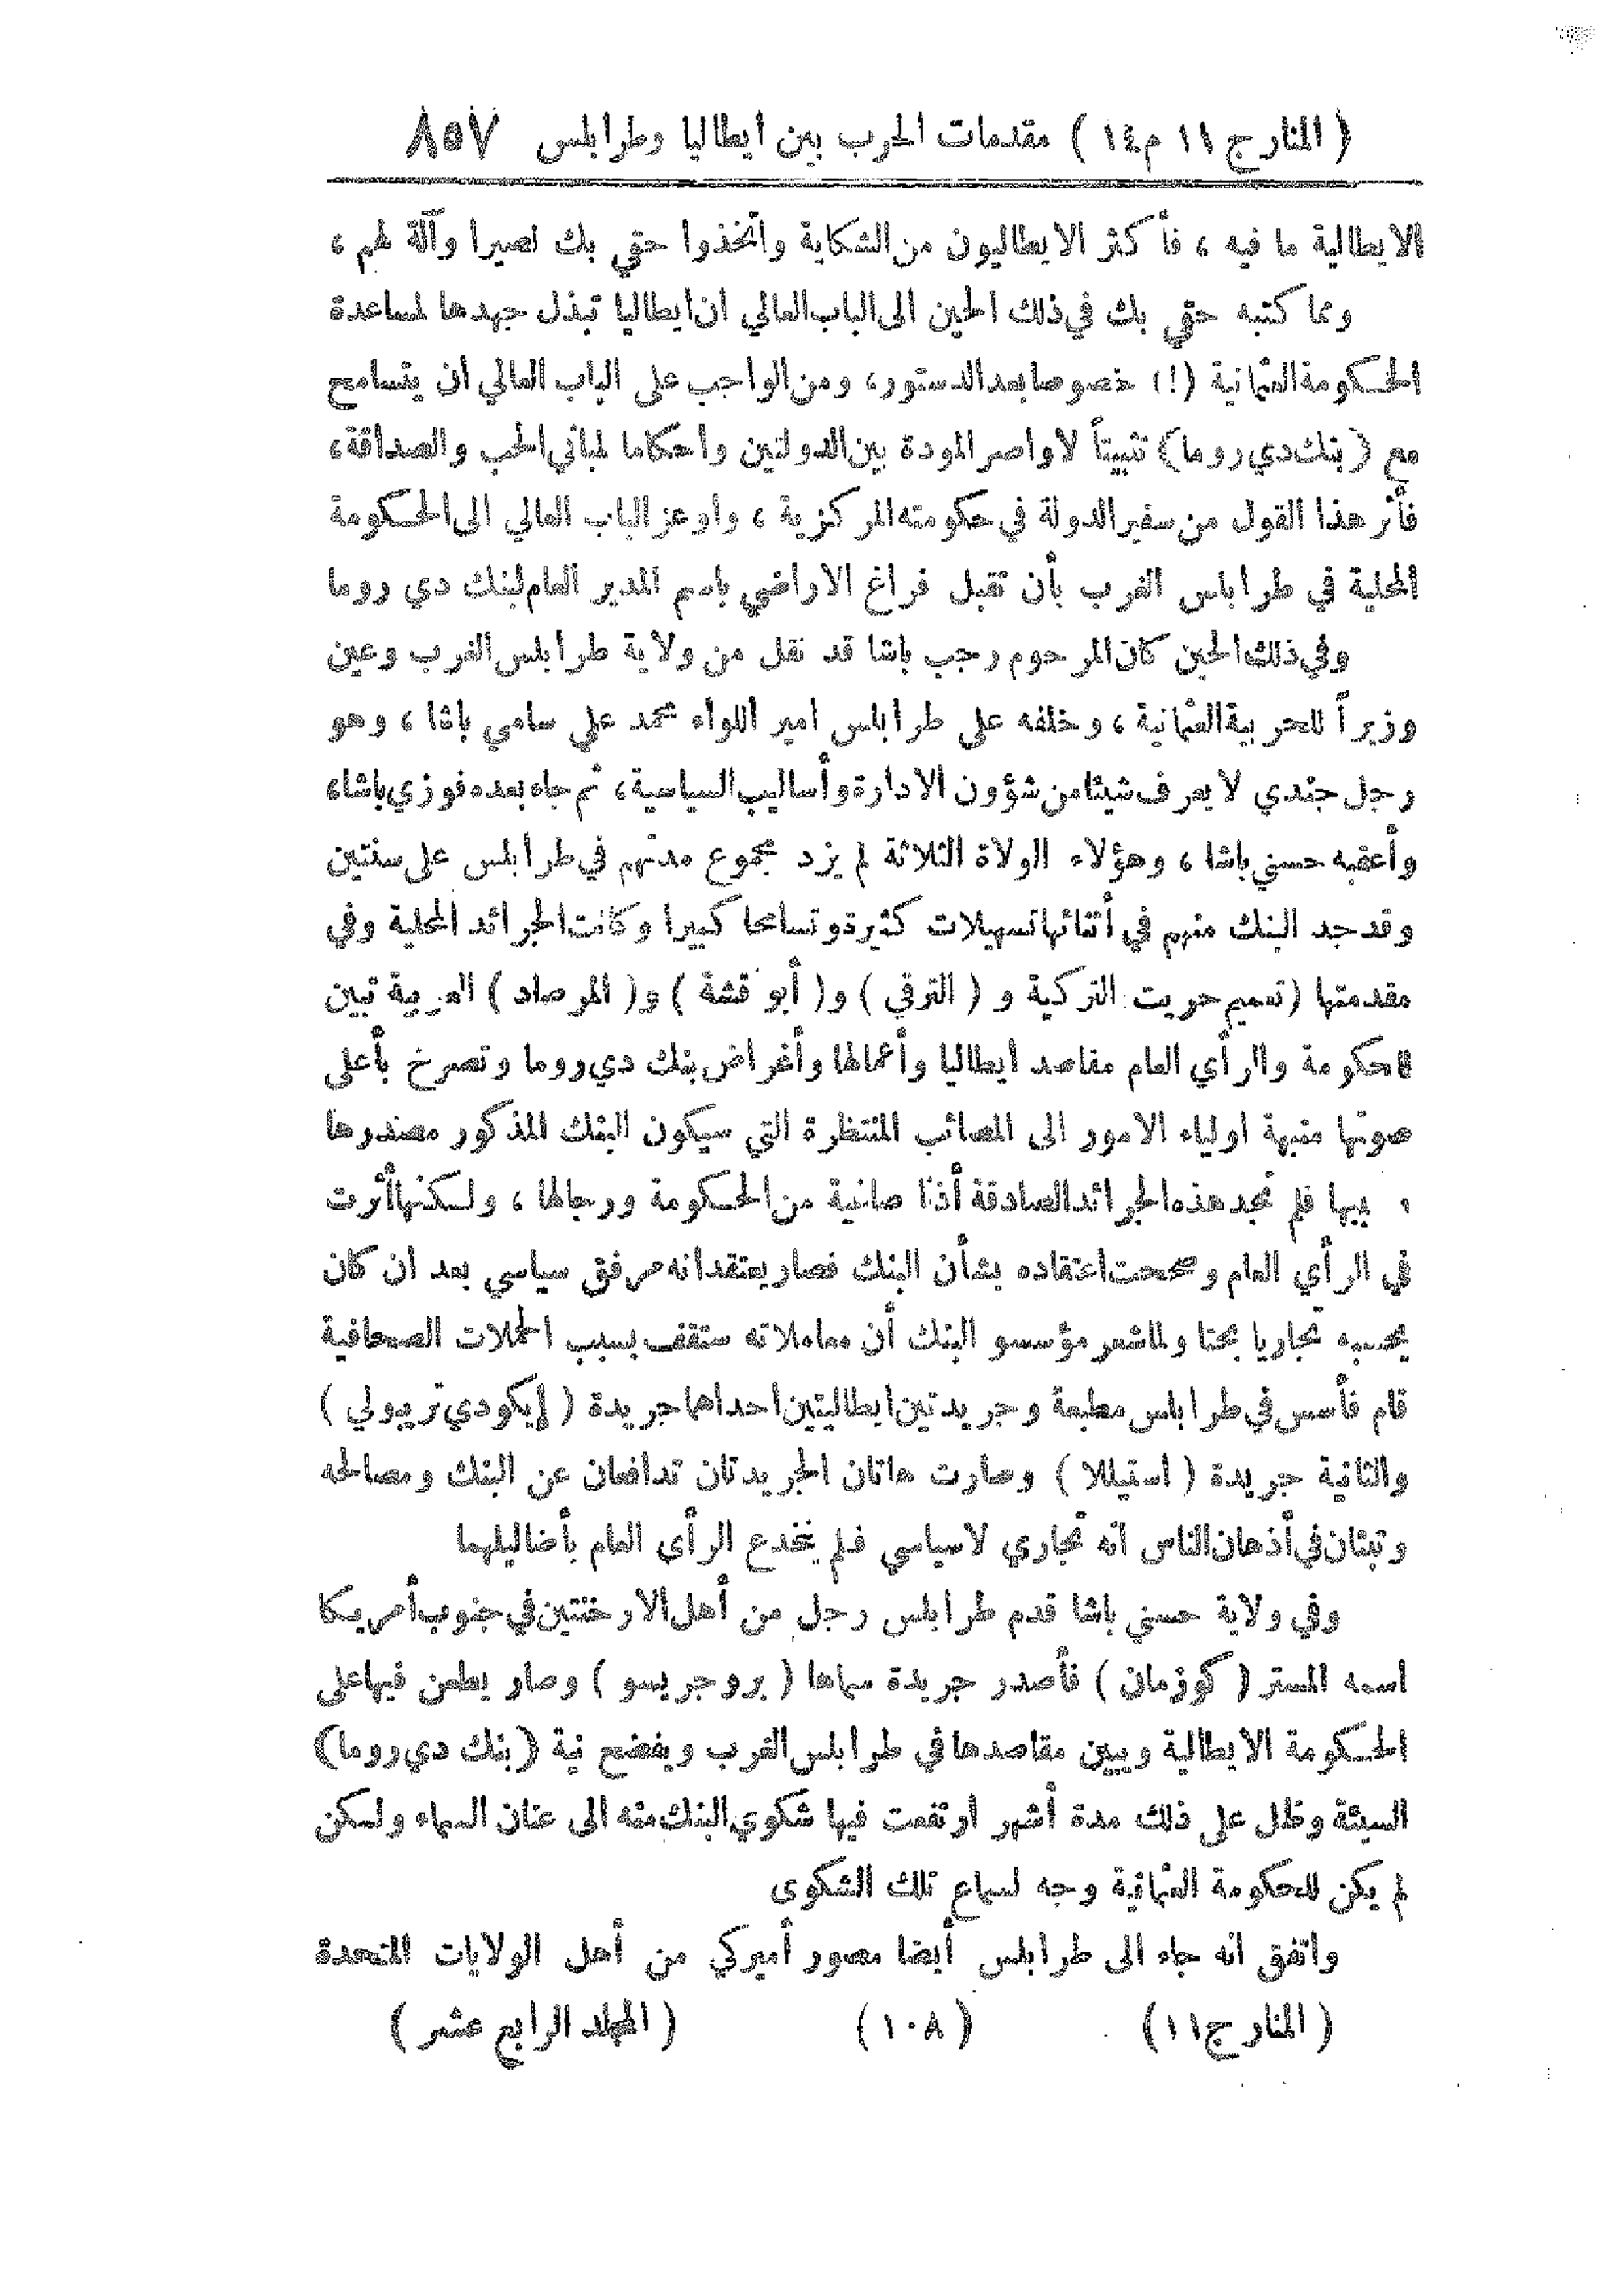 ( المنار ج ١١ م ١٤ ) مقدمات الحرب بين ايطاليا وطرابلس ٨٥٧
الايطالية ما فيه ، فأكثر الايطاليون من الشكاية واتخذوا حقي بك نصيرا وآلة لهم ،
ومما كتبه حقي بك في ذلك الحين الى الباب العالي ان ايطاليا تبذل جهدها لمساعدة
الحكومة العثمانية (!) خصوصا بعد الدستور، ومن الواجب على الباب العالي ان يتسامح
مع (بنك دي روما) تثبيتاً لاواصر المودة بين الدولتين واحكاما لمباني الحب والصداقة،
فأثر هذا القول من سفير الدولة في حكومته المركزية ، واوعز الباب العالي الى الحكومة
المحلية في طرابلس الغرب بأن تقبل فراغ الاراضي باسم المدير العام لبنك دي روما
وفي ذلك الحين كان المرحوم رجب باشا قد نقل من ولاية طرابلس الغرب وعين
وزيراً للحربية العثمانية ، وخلفه على طرابلس امير اللواء محمد علي سامي باشا ، وهو
رجل جندي لا يعرف شيئا من شؤون الادارة وأساليب السياسية، ثم جاء بعده فوزي باشا،
وأعقبه حسني باشا ، وهؤلاء الولاة الثلاثة لم يزد مجموع مدتهم في طرابلس على سنتين
وقد جد البنك منهم في أثنائها تسهيلات كثيرة وتسامحا كبيرا وكانت الجرائد المحلية وفي
مقدمتها (تعميم حريت التركية و ( الترقي ) و( أبو قشة ) و( المرصاد ) العربية تبين
للحكومة والرأي العام مقاصد ايطاليا وأعمالها وأغراض بنك دي روما وتصرخ بأعلى
صوتها منبهة اولياء الامور الى المصائب المنتظرة التي سيكون البنك المذكور مصدرها
فلم تجد هذه الجرائد الصادقة أذنا صاغية من الحكومة ورجالها ، ولكنها أثرت
في الرأي العام وصححت اعتقاده بشأن البنك فصار يعتقد انه مرفق سياسي بعد ان كان
يحسبه تجاريا بحتا ولما شعر مؤسسو البنك أن معاملاته ستقف بسبب الحملات الصحافية
قام فأسس في طرابلس مطبعة وجريدتين ايطاليتين احداهما جريدة ( إيكودي تريبولي )
والثانية جريدة ( استيللا ) وصارت هاتان الجريدتان تدافعان عن البنك ومصالحه
وتبثان في أذهان الناس انه تجاري لاسياسي فلم يخدع الرأى العام بأضاليلهما
وفي ولاية حسني باشا قدم طرابلس رجل من أهل الارخنتين في جنوب أمريكا
اسمه المستر ( كوزمان ) فأصدر جريدة سماها ( بروجريسو ) وصار يطعن فيها على
الحكومة الايطالية ويبين مقاصدها في طرابلس الغرب ويفضح نية (بنك دي روما)
السيئة وظل على ذلك مدة أشهر ارتفعت فيها شكوي البنك منه الى عنان السماء ولكن
لم يكن للحكومة العثمانية وجه لسماع تلك الشكوى
واتفق انه جاء الى طرابلس أيضا مصور أميركي من أهل الولايات المتحدة
( المنار ج ١١ ) ( ١٠٨ ) ( المجلد الرابع عشر )